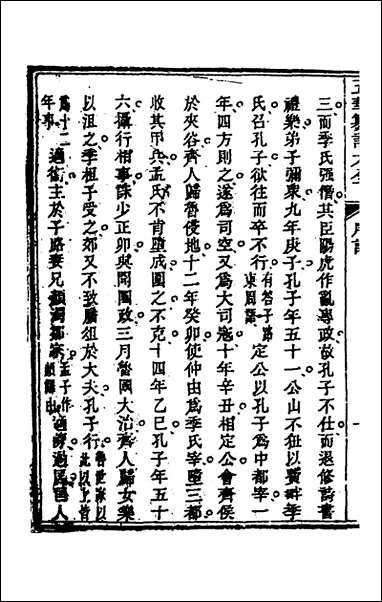 三而季氏強僭其臣陽虎作亂專政故孔子不仕而退修詩書
禮樂弟子彌衆九年庚子孔子年五十一公山不狃以費畔季
氏召孔子欲往而卒不行有答子路東周語定公以孔子爲中都宰一
年四方則之遂爲司空又爲大司寇十年辛丑相定公會齊侯
於夾谷齊人歸魯侵地十二年癸卯使仲由爲季氏宰墮三都
收其甲兵孟氏不肯墮成圍之不克十四年乙巳孔子年五十
六攝行相事誅少正卯與聞國政三月魯國大治齊人歸女樂
以沮之季桓子受之郊又不致膰俎於大夫孔子行魯世家以此以上皆
爲十二年事適衛主於子路妻兄顏濁鄒家孟子作顏讎由適陳過匡匡人